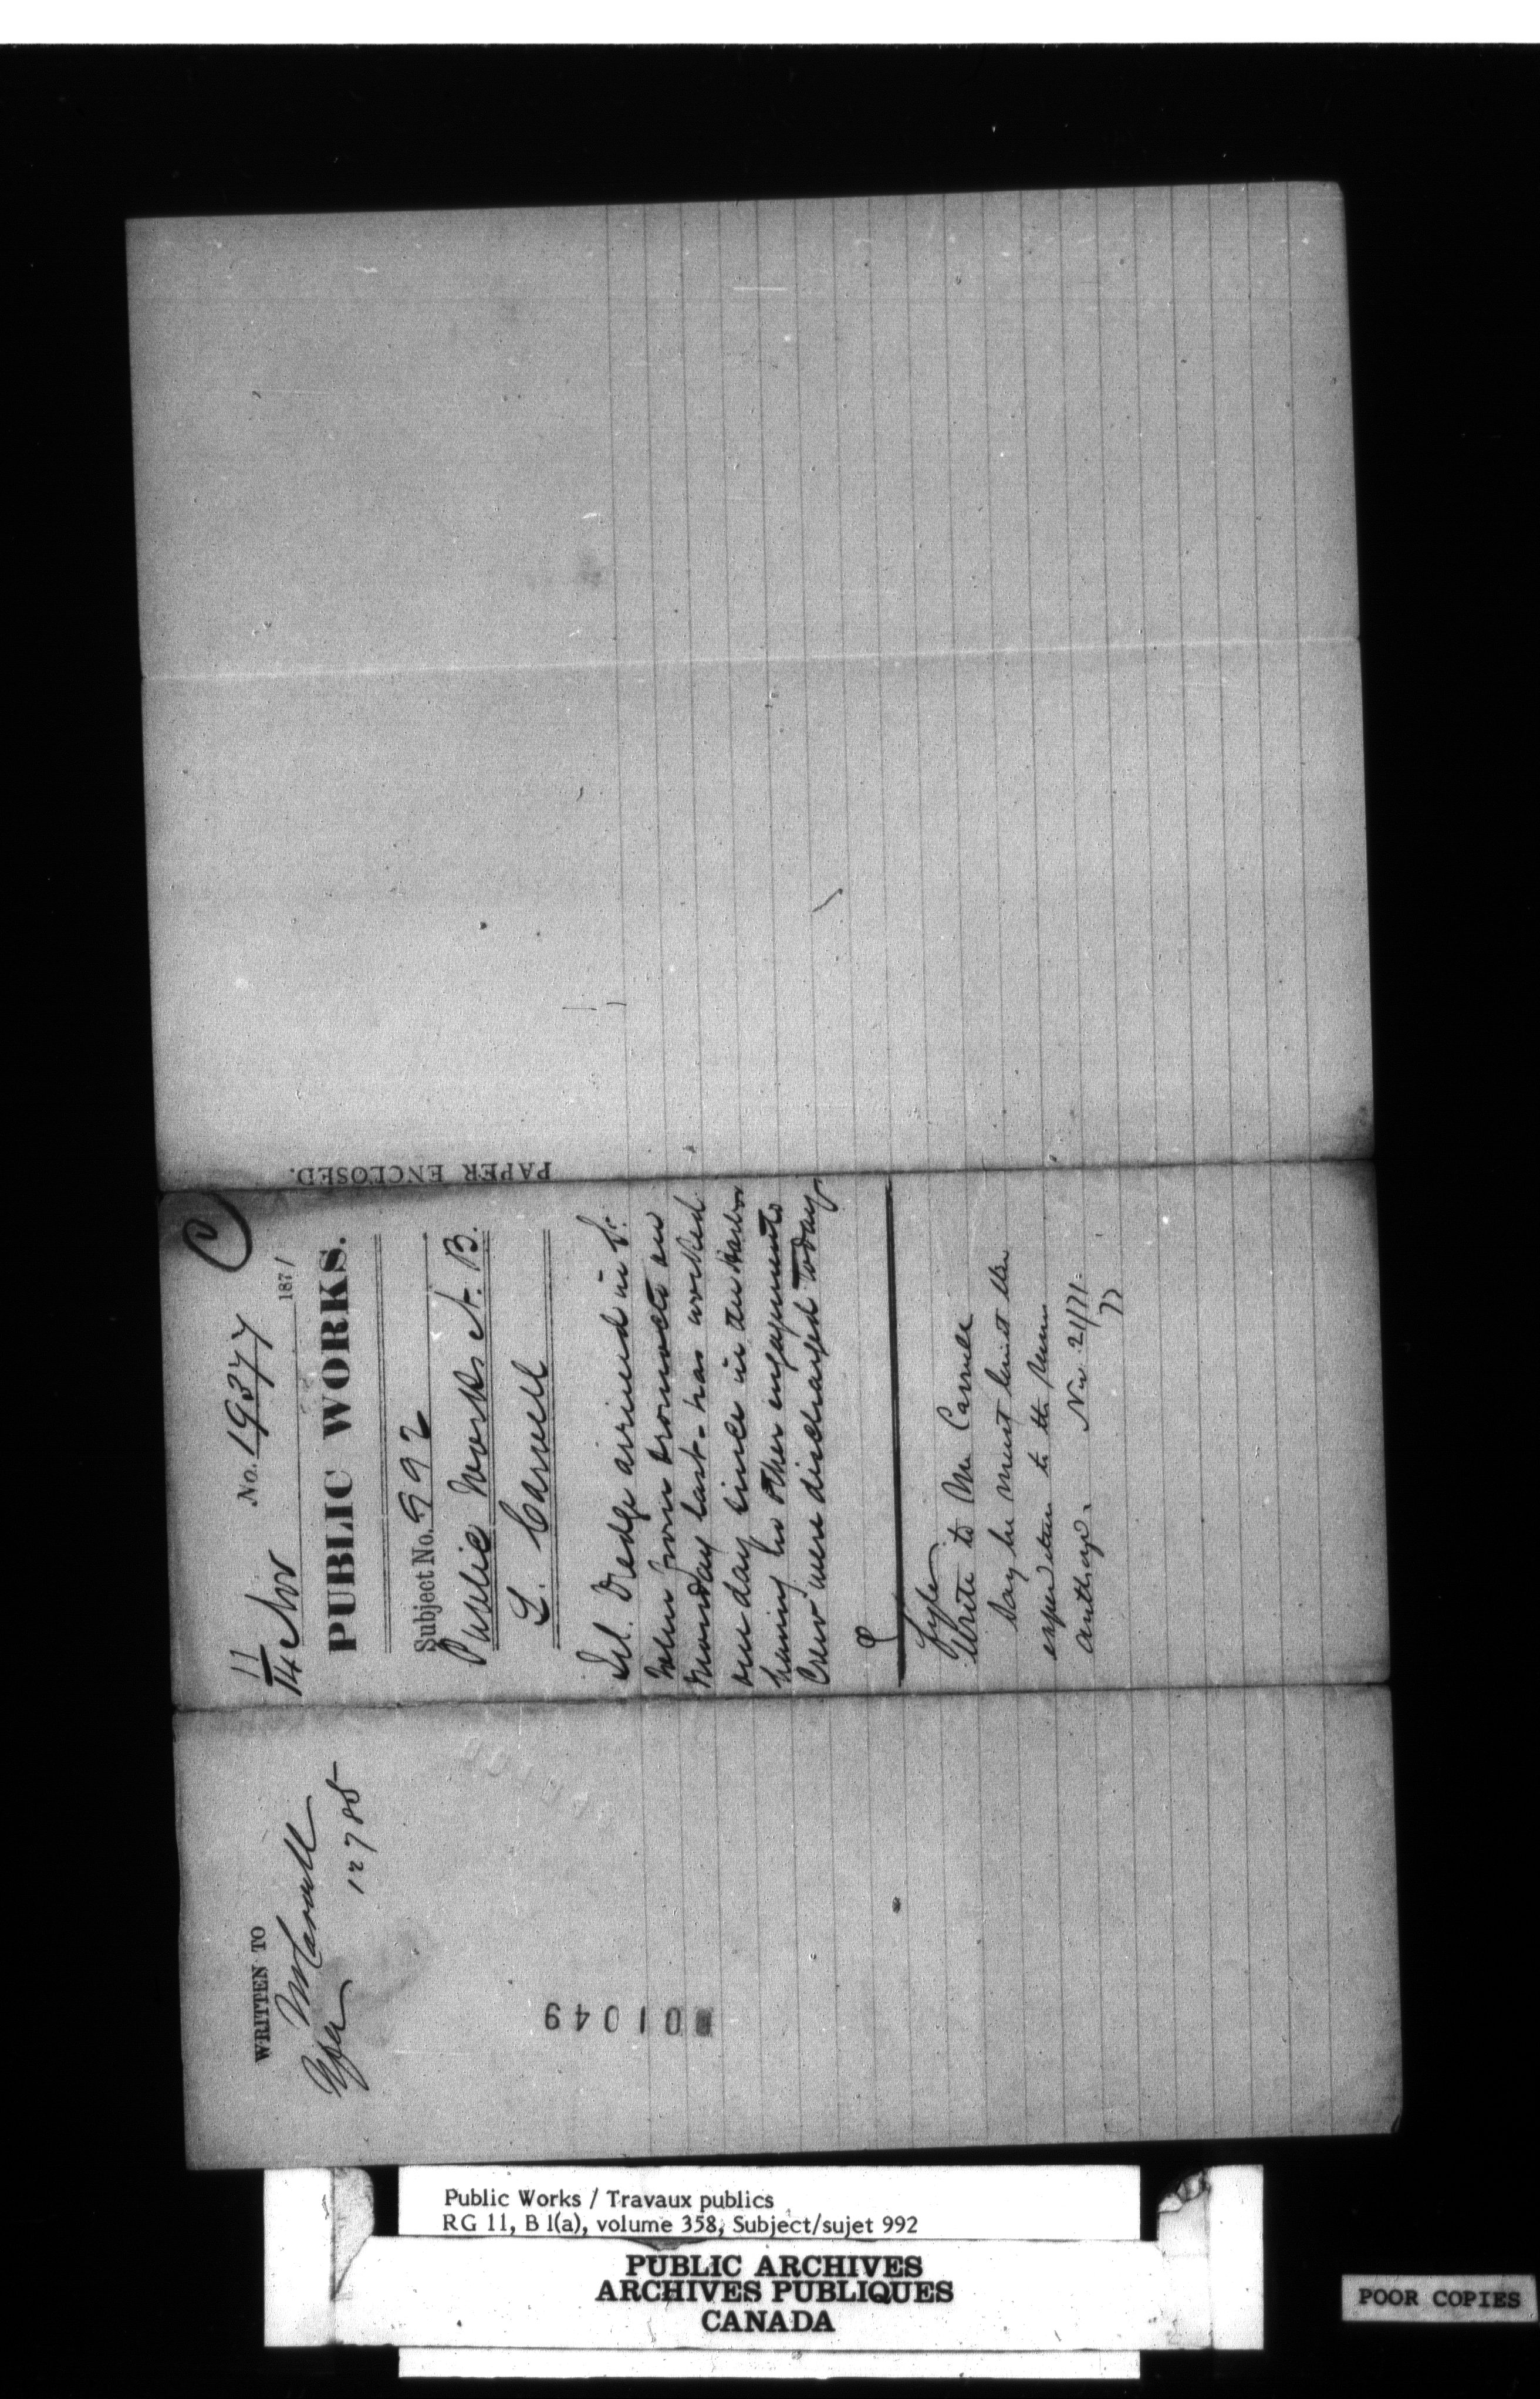 11
14 Nov No. 19377 1871
PUBLIC WORKS.
Subject No. 992
Public Works N. B.
L. Carvell
Tel. Dredge arrived in St.
John from Dromocto on
Monday last - has worked
one day since in the Harbor
having no other engagements
Crew were discharged today
Write to Mr Carvell
Say he must limit the
expenditure to the sum
authorised. Nov 21/71.
PAPER ENCLOSED.
WRITTEN TO
Mr Carvell
12785
001049
Public Works / Travaux publics
RG 11, B 1(a), volume 358, Subject/sujet 992
PUBLIC ARCHIVES
ARCHIVES PUBLIQUES
CANADA
POOR COPIES